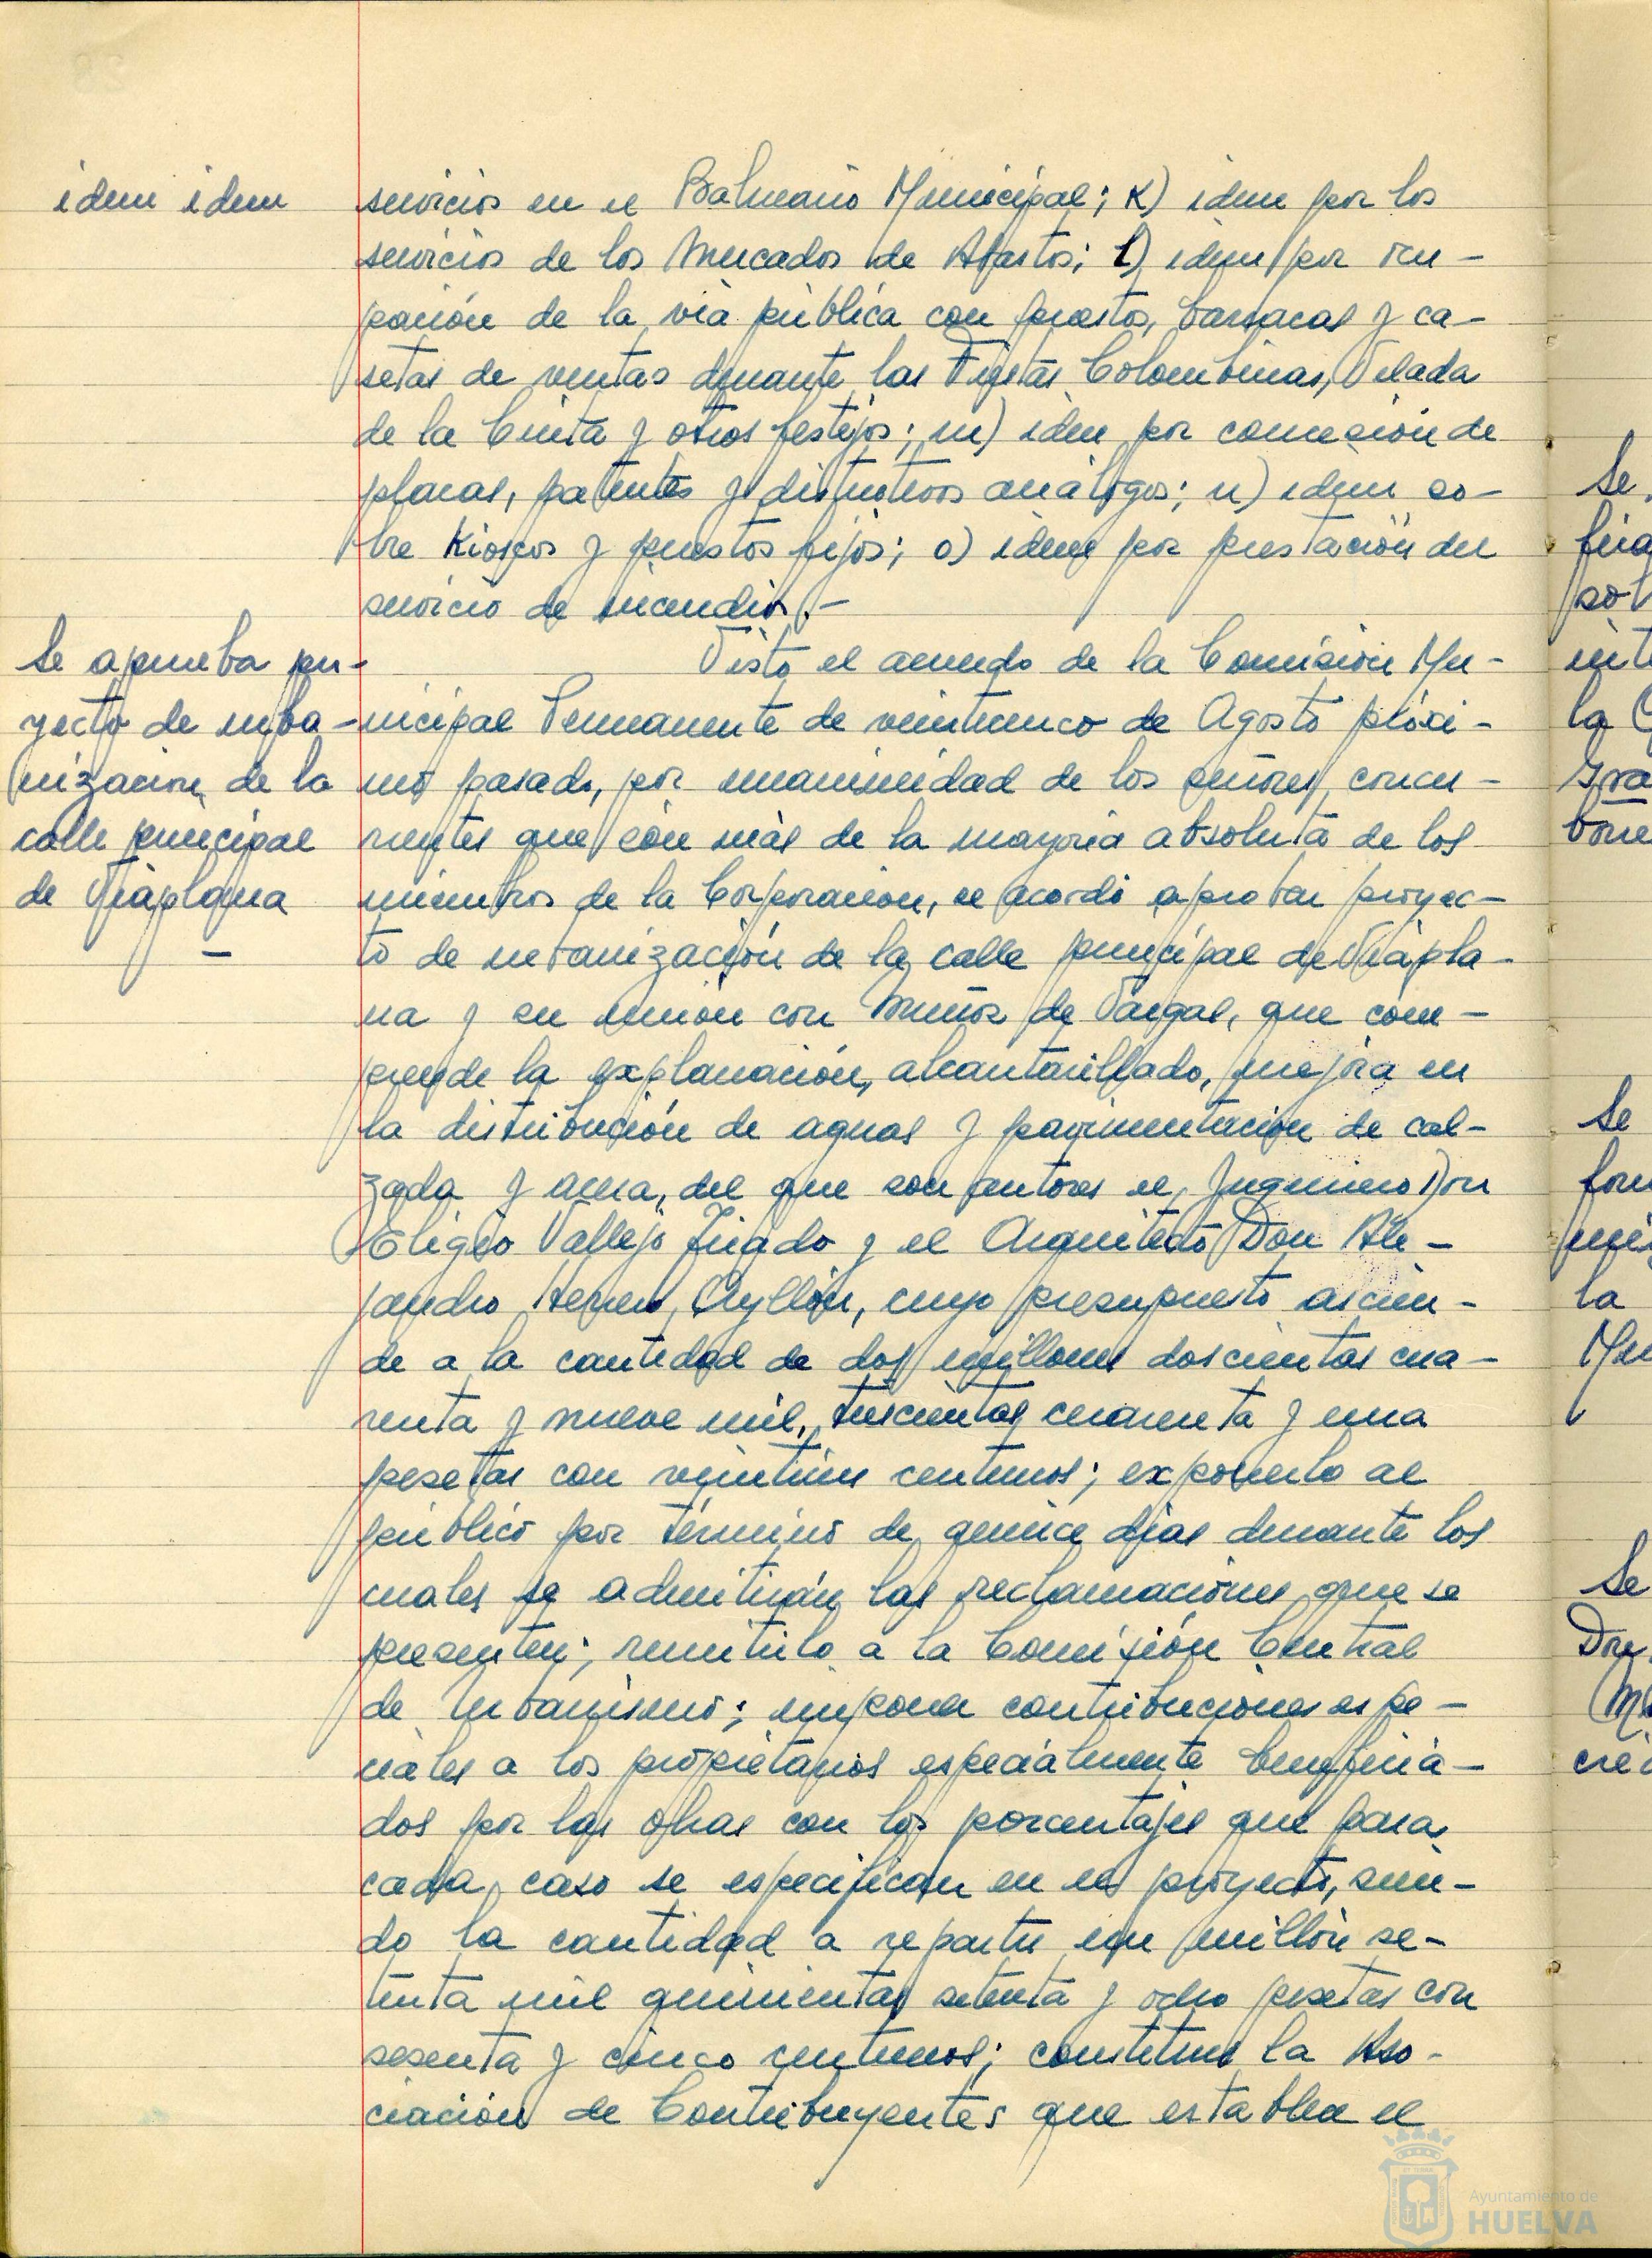 idem idem
servicios en el Balneario Municipal; K) idem por los
servicios de los Mercados de Abastos; l) idem por ocu-
pación de la via pública con puestos, barracas y ca-
setas de ventas durante las Fiestas Colombinas, Velada
de la Cinta y otros festejos; m) idem por concesión de
placas, patentes y distintivos análogos; n) idem so-
bre Kioskos y puestos fijos; o) idem por prestación del
servicio de incendios.-
Se aprueba pro-
yecto de urba-
nización de la
calle principal
de Viaplana
-
Visto el acuerdo de la Comisión Mu-
nicipal Permanente de veinticinco de Agosto próxi-
mo pasado, por unanimidad de los señores concu-
rrentes que són más de la mayoria absoluta de los
miembros de la Corporación, se acordó aprobar proyec-
to de urbanización de la calle principal de Viapla-
na y su unión con Muñoz de Vargas, que com-
prende la explanación, alcantarillado, mejora en
la distribución de aguas y pavimentación de cal-
zada y acera, del que son autores el Ingeniero Don
Eligio Vallejo Tirado y el Arquitecto Don Ale-
jandro Herrero Ayllón, cuyo presupuesto ascien-
de a la cantidad de dos millones doscientas cua-
renta y nueve mil, trescientas cuarenta y una
pesetas con veintiun centimos; exponerlo al
público por término de quince dias durante los
cuales se admitirán las reclamaciones que se
presenten; remitirlo a la Comisión Central
de Urbanismo; imponer contribuciones espe-
ciales a los propietarios especialmente beneficia-
dos por las obras con los porcentajes que para
cada caso se especifican en el proyecto, sien-
do la cantidad a repartir un millón se-
tenta mil quinientas setenta y ocho pesetas con
sesenta y cinco centimos; constituir la Aso-
ciación de Contribuyentes que establece el
Se
la
Se
la
Se
Ayuntamiento de
HUELVA